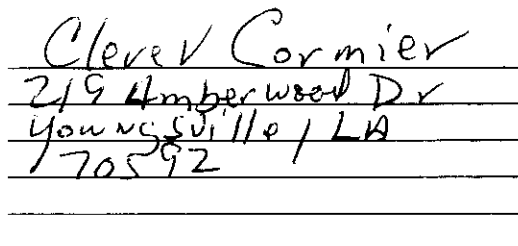 Clever Cormier
219 Amberwood Dr
Youngsville, LA
70592